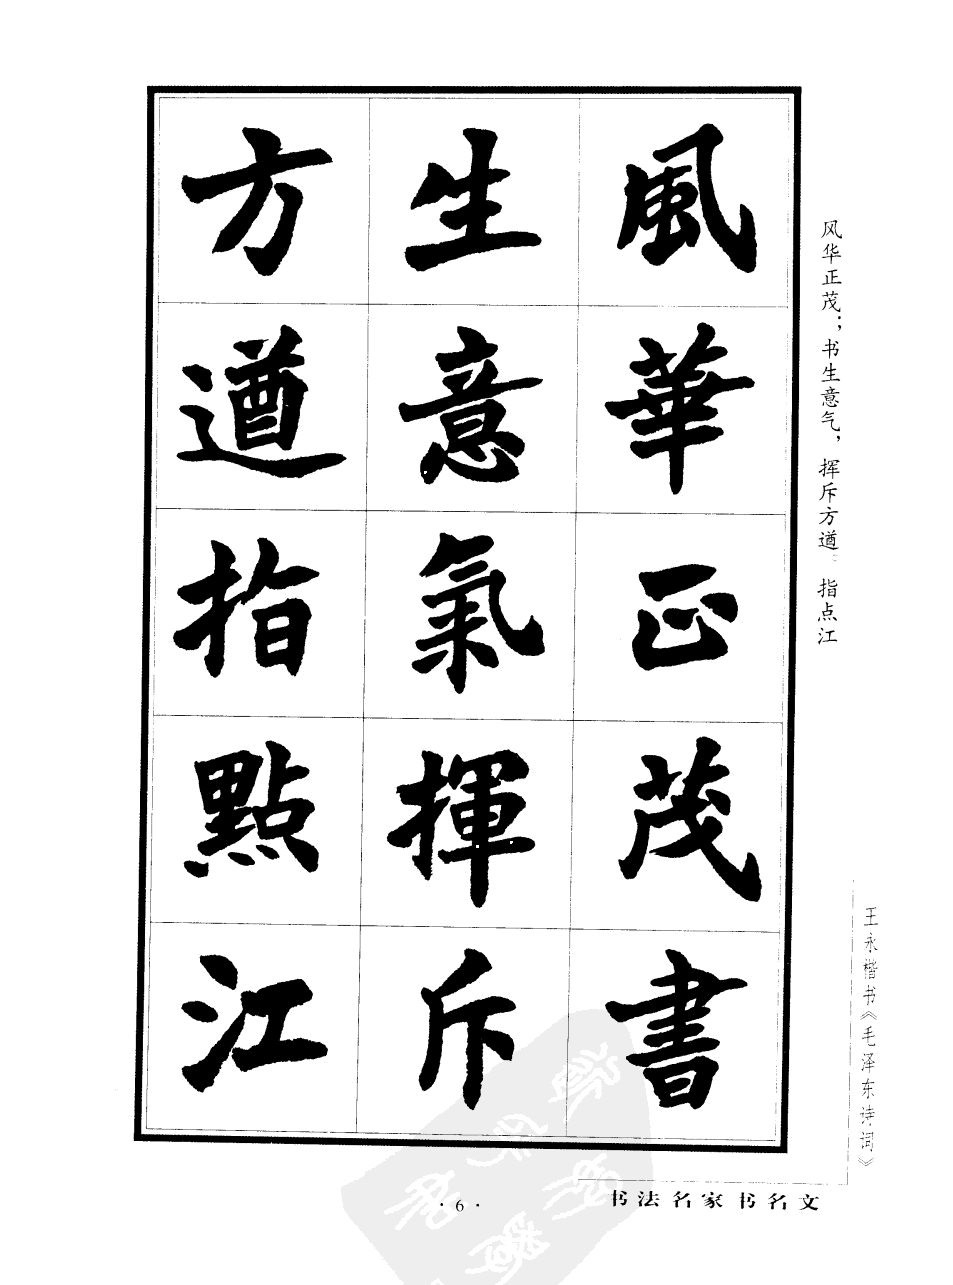 風華正茂書
生意氣揮斥
方遒指點江
风华正茂；书生意气，挥斥方遒。指点江
王永楷书《毛泽东诗词》
书法名家书名文
·6·